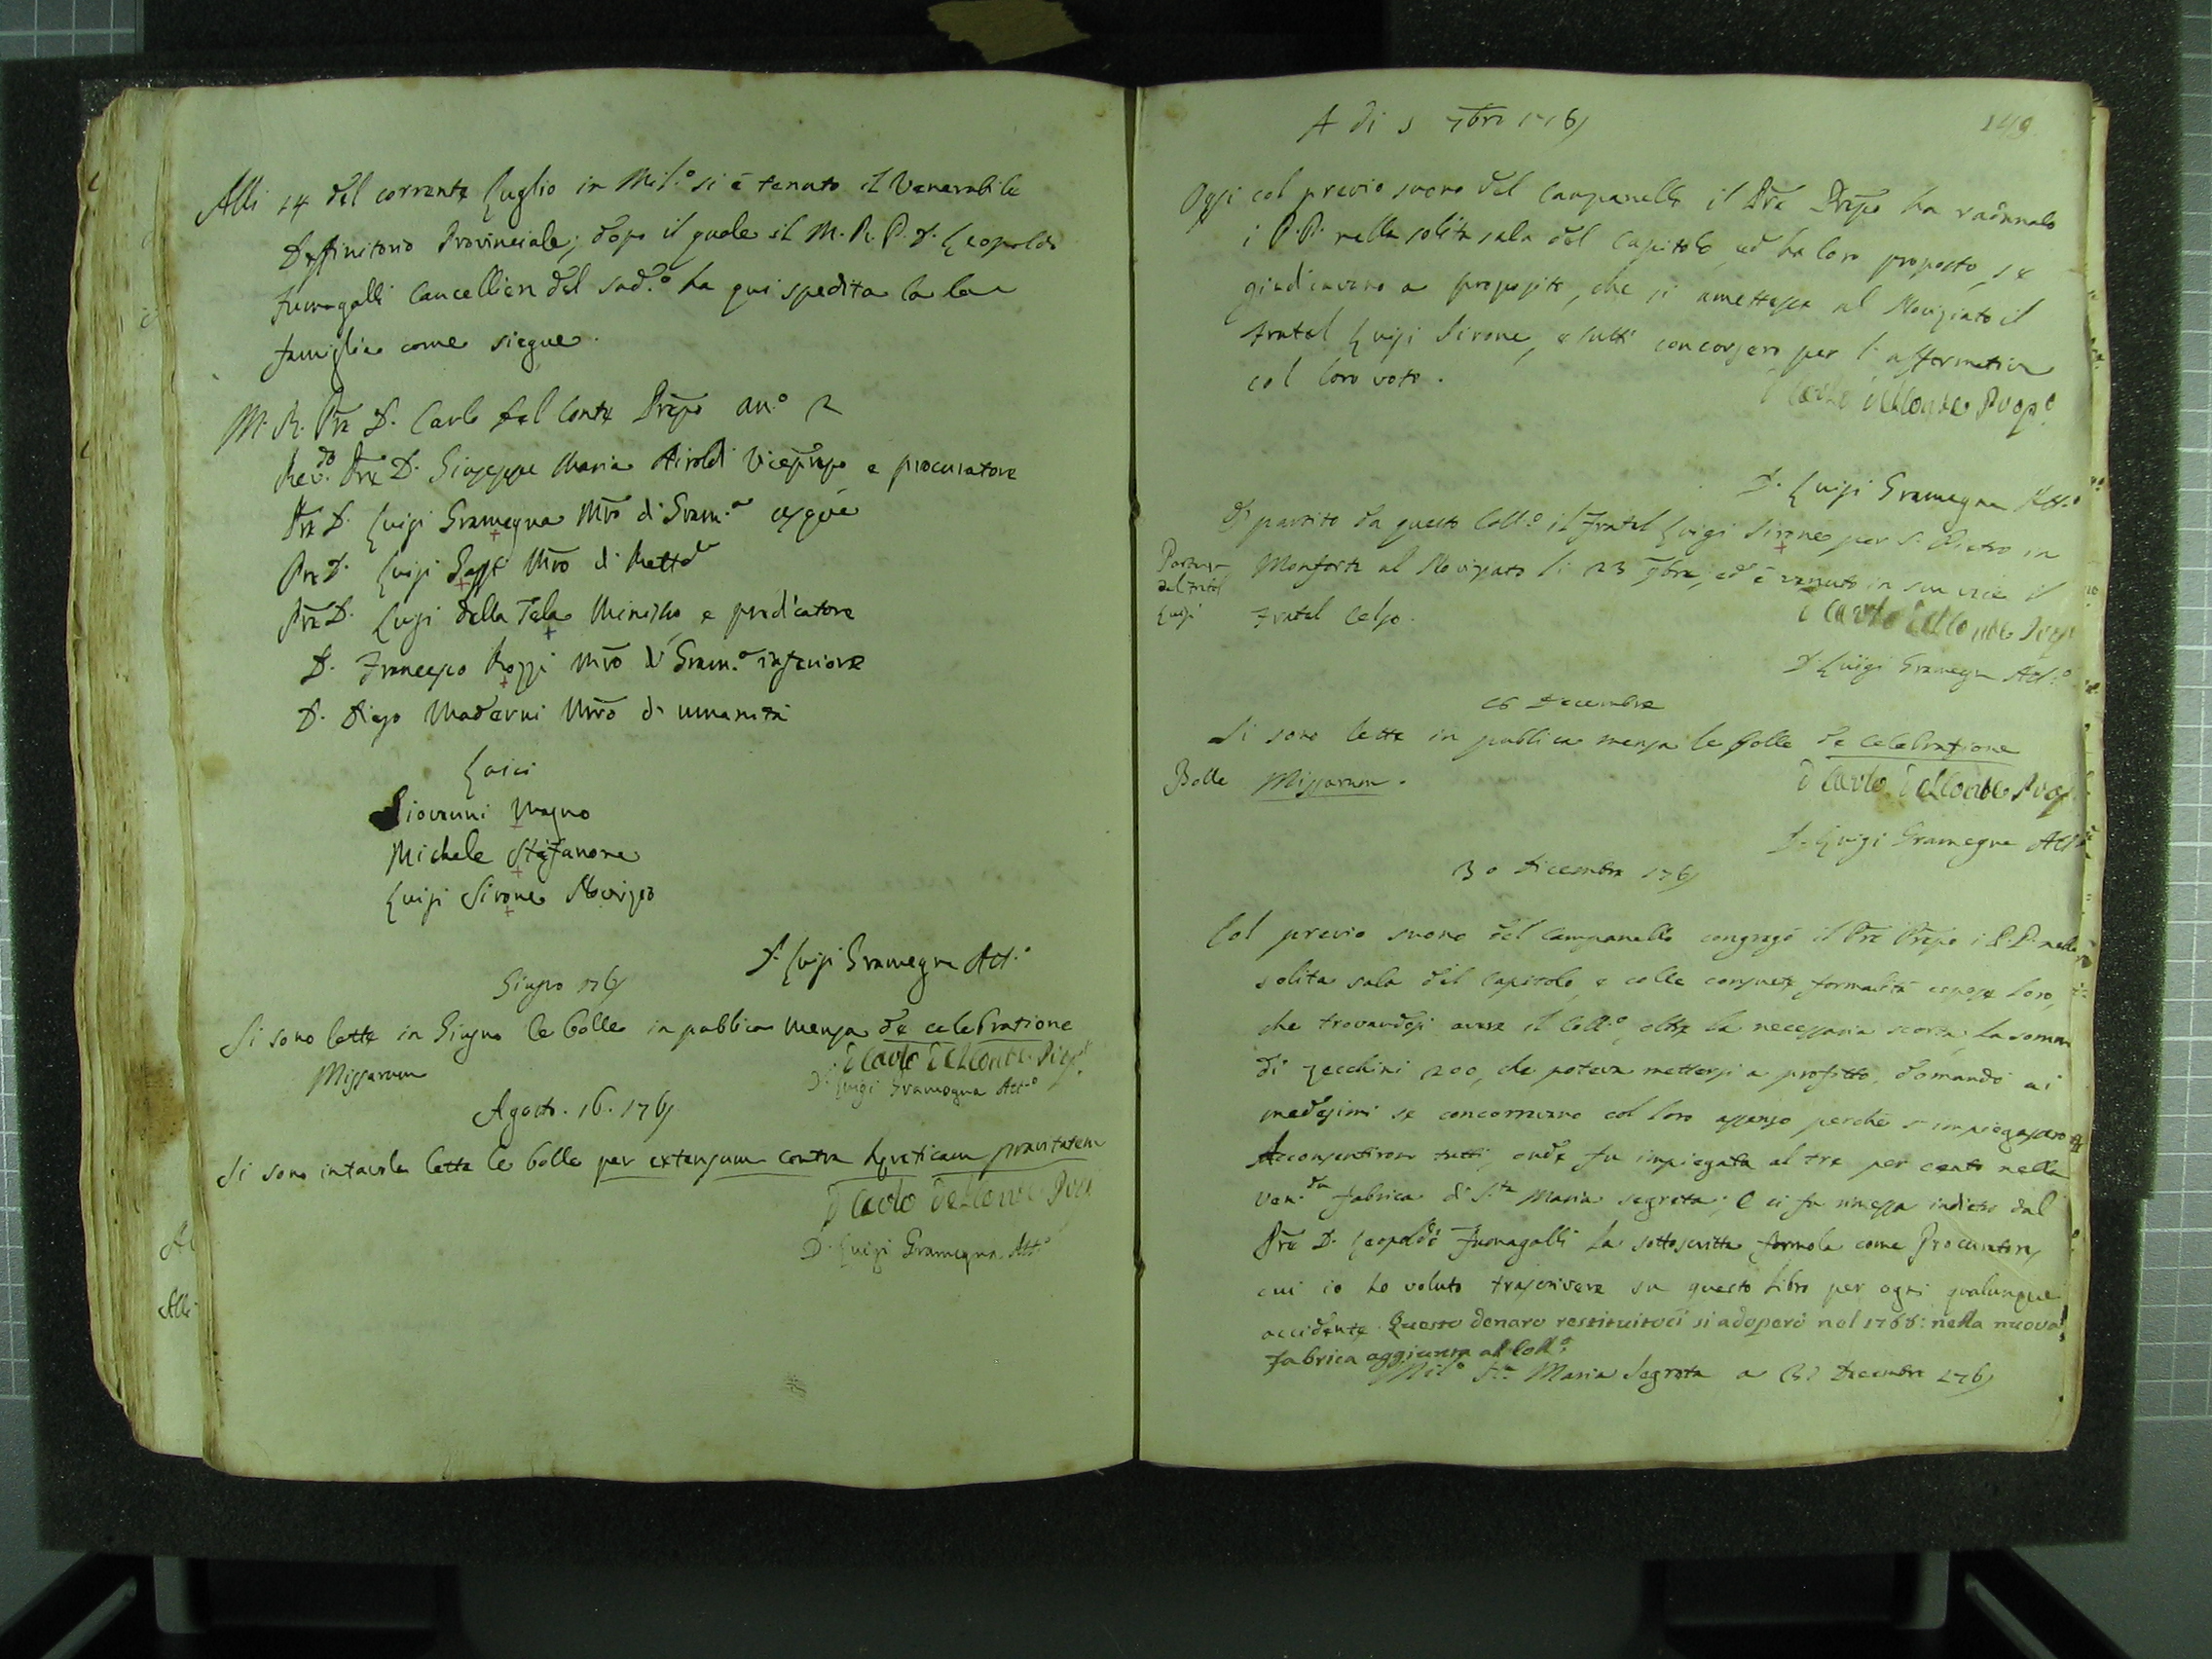 Alli 14 del corrente Luglio in Mil.o si è tenuto il Venerabile
Deffinitorio Provinciale; dopo il quale il M. R. P. D. Leopoldo
Fumagalli Cancelliere del sud.o ha qui spedita la
famiglia come siegue.
M. R. Pre D. Carlo Del Conte Prepo an.o 2
Rev.do Pre D. Giuseppe Maria Airoldi Viceprepo e procuratore
Pre D. Luigi Gramegna Mro di Gram.a
Pre D. Luigi Mro di Rett.a
Pre D. Luigi della Tela Ministro, e predicatore
D. Francesco Rozzi Mro di Gram.a inferiore
D. Diego Maderni Mro di umanità
Laici
Giovanni Magno
Michele Steffanone
Luigi Sirone Novizio
D. Luigi Gramegna Att.o
Giugno 1761
Si sono lette in Giugno le bolle in publica mensa de celebratione
Missarum
D Carlo DelConte Prep.o
D. Luigi Gramegna Att.o
Agosto. 16. 1761
Si sono in tavola lette le bolle per extensum contra hereticam pravitatem
D Carlo DelConte Prep
D. Luigi Gramegna Att.o
Al
Alli
149
A di 5 7bre 1761
Oggi col previo suono del Campanello il Pre Prepo ha radunato
i P.P. nella solita sala del Capitolo, ed ha loro proposto, se
giudicavano a proposito, che si amettesse al Noviziato il
Fratel Luigi Sirone, e tutti concorsero per l'affermativa
col loro voto.
D Carlo DelConte Prep.o
D. Luigi Gramegna Att.o
È partito da questo Coll.o il Fratel Luigi Sirone per S. Pietro in
Partenza
del Fratel
Luigi
Monforte al Noviziato li 23 9bre, ed è venuto in sua vice il
Fratel Celso.
D Carlo DelConte Prep
D Luigi Gramegna Att.o
26 Decembre
Si sono lette in publica mensa le Bolle de Celebratione
Bolle Missarum.
D Carlo DelConte Prep
D. Luigi Gramegna Att.o
30 Dicembre 1761
Col previo suono del Campanello congregò il Pre Prepo i P.P. nella
solita sala del Capitolo, e colle consuete formalità espose loro,
che trovandosi avere il Coll.o, oltre la necessaria scorta, la somma
di zecchini 200, che poteva mettersi a profitto, domandò ai
medesimi se concorrevano col loro assenso perchè s'impiegassero
Acconsentirono tutti, onde fu impiegata al tre per cento nella
Ven.da fabrica di S.ta Maria segreta; e ci fu rimessa indietro dal
Pre D. Leopoldo Fumagalli la sottoscritta formola come Procuratore,
cui io ho voluto trascrivere su questo Libro per ogni qualunque
accidente. Questo denaro restituitoci si adoperò nel 1768: nella nuova
fabrica aggiunta al Coll.o
Mil.o S.ta Maria Segreta a 31 Decembre 1761